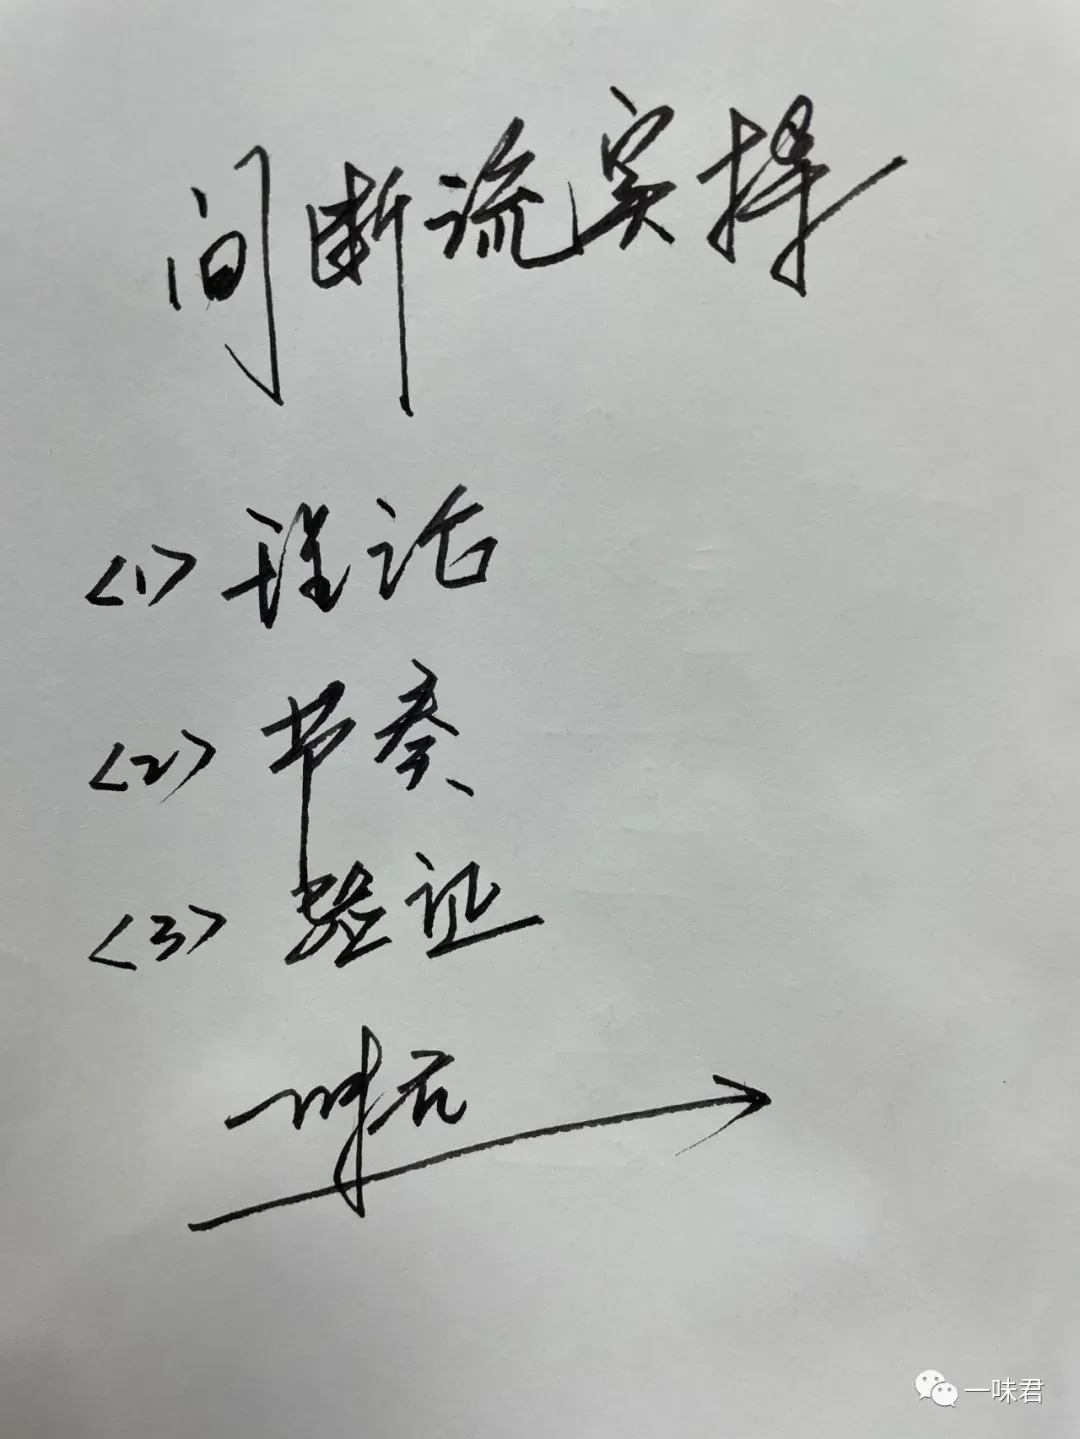 间断流实操
<1> 理论
<2> 节奏
<3> 验证
一味君
一味君